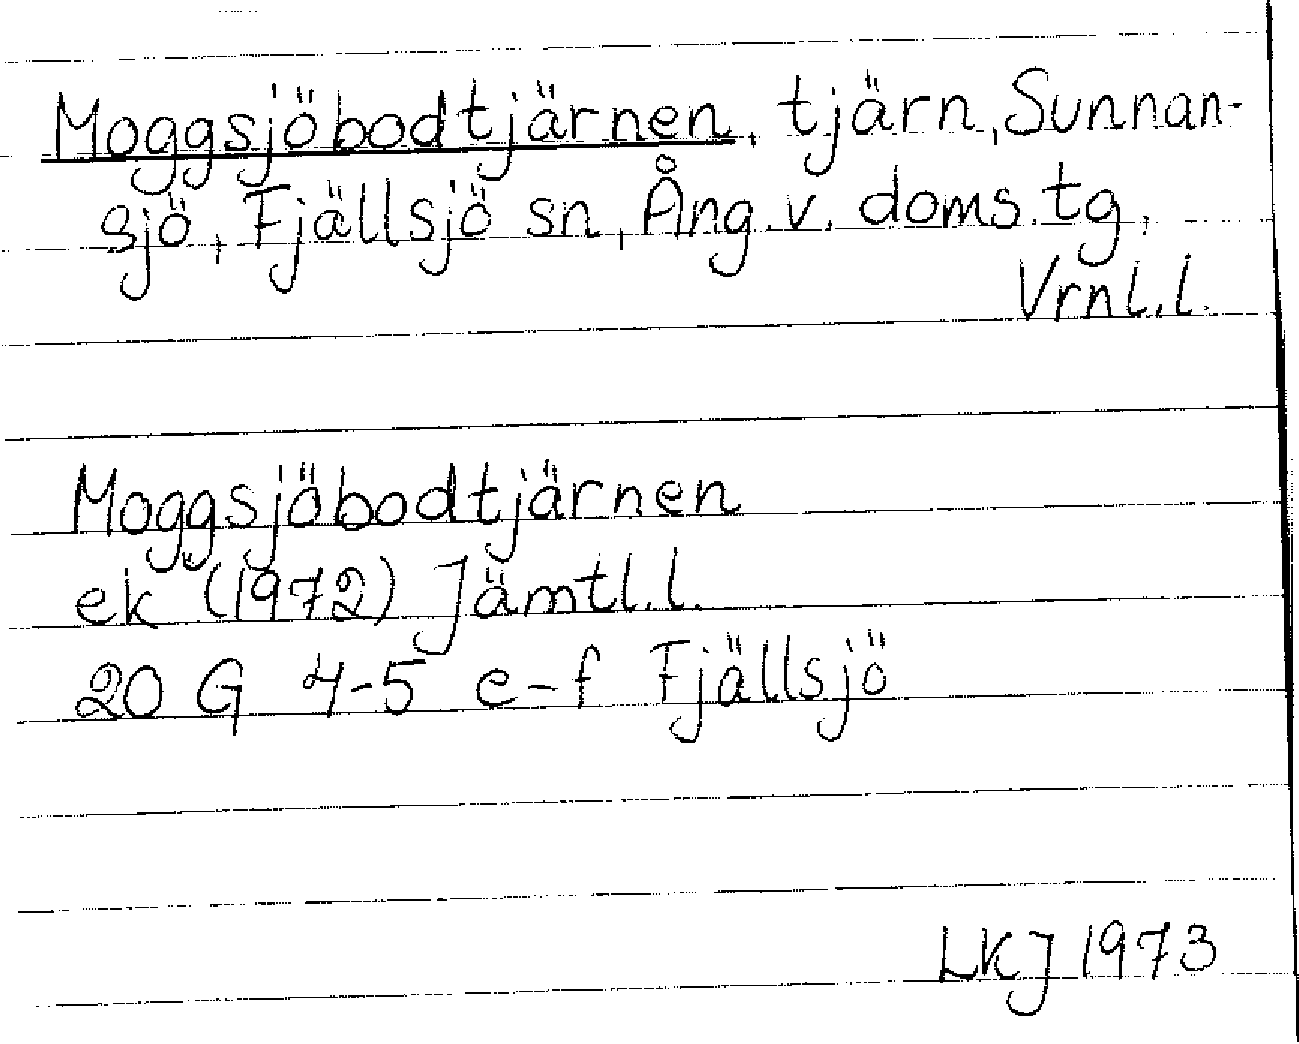 Moggsjöbodtjärnen, tjärn, Sunnan-
sjö, Fjällsjö sn, Ång. v. doms. tg,
Vrnl. l.
Moggsjöbodtjärnen
ek (1972) Jämtl. l.
20 G 4-5 e-f Fjällsjö
LKJ 1973